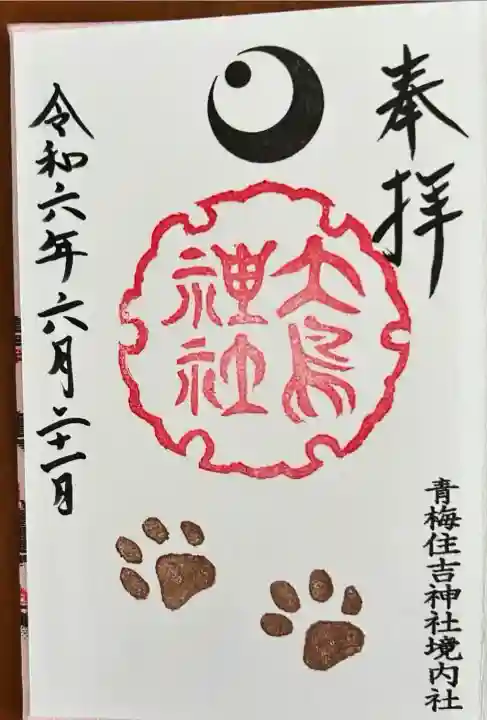 奉拝
大鳥
神社
令和六年六月二十一日
青梅住吉神社境内社